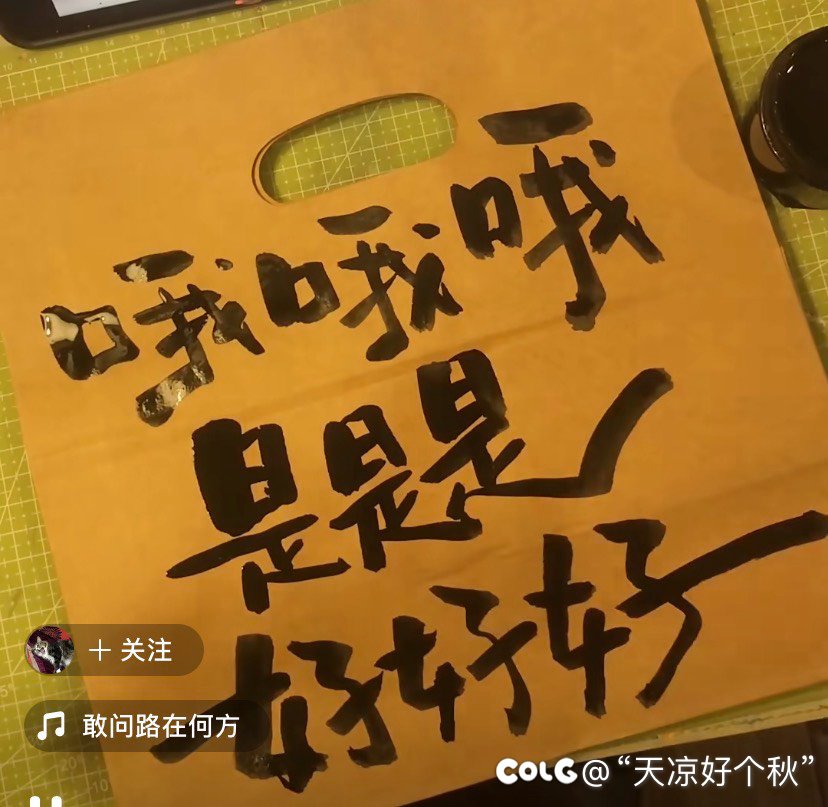 哦哦哦
是是是
好好好
+ 关注
敢问路在何方
COLG@“天凉好个秋”